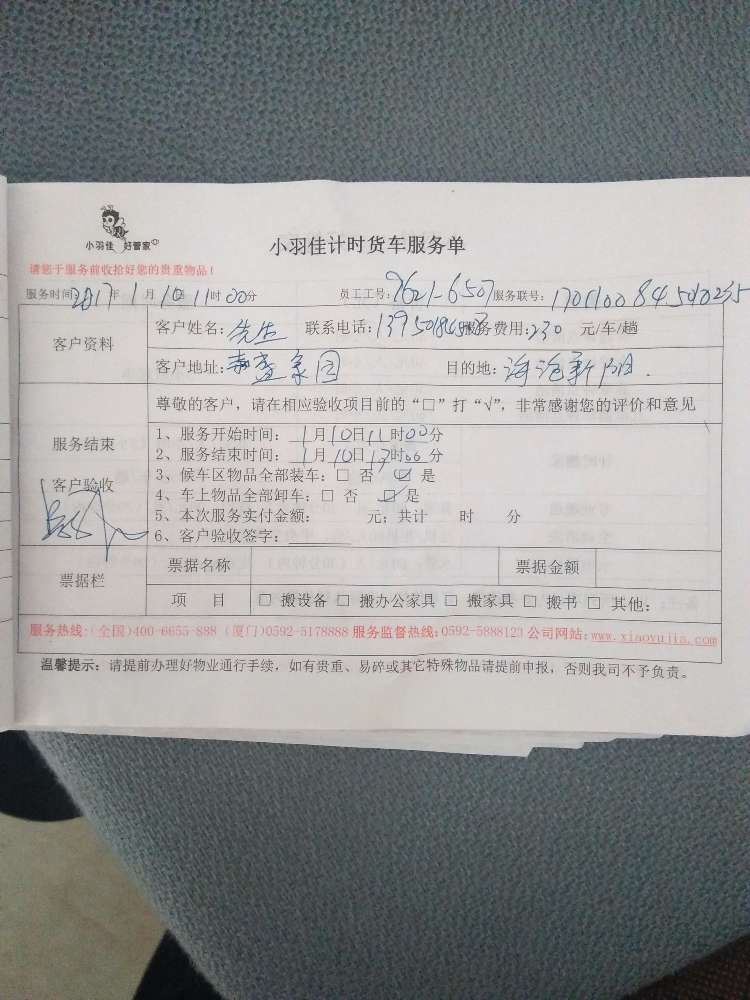 小羽佳 好管家
小羽佳计时货车服务单
请您于服务前收拾好您的贵重物品！
服务时间：2017年1月10日11时00分 员工工号：7621-6507 服务联号：
客户资料
客户姓名：先生 联系电话： 服务费用：230 元/车/趟
客户地址：家园 目的地：海沧新阳.
尊敬的客户，请在相应验收项目前的“□”打“√”，非常感谢您的评价和意见
服务结束
客户验收
1、服务开始时间：1月10日11时00分
2、服务结束时间：1月10日17时00分
3、候车区物品全部装车：□ 否 ☑ 是
4、车上物品全部卸车：□ 否 ☑ 是
5、本次服务实付金额： 元；共计 时 分
6、客户验收签字：
票据栏
票据名称 票据金额
项 目 □ 搬设备 □ 搬办公家具 □ 搬家具 □ 搬书 □ 其他：
服务热线：(全国)400-6655-888 (厦门)0592-5178888 服务监督热线：0592-5888123 公司网站：www.xiaoyujia.com
温馨提示：请提前办理好物业通行手续，如有贵重、易碎或其它特殊物品请提前申报，否则我司不予负责。